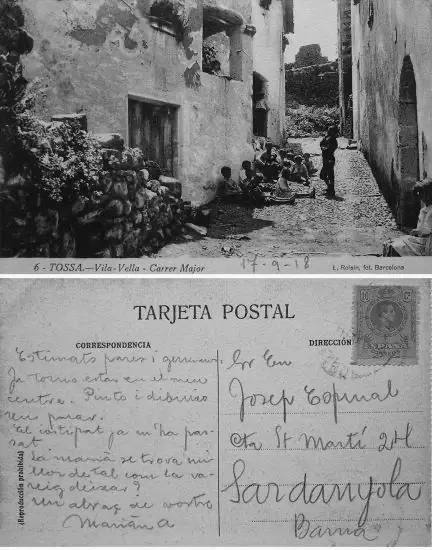 6 - TOSSA.—Vila-Vella - Carrer Major
17-9-18
L. Roisin, fot. Barcelona
TARJETA POSTAL
CORRESPONDENCIA
DIRECCIÓN
(Reproducción prohibida)
Estimats pares i germans:
Ja torno estar en el meu
centre. Pinto i dibuixo
sens parar.
El costipat ja m'ha pas-
sat
La mamà se trova mi-
llor de tal com la va-
reig deixar?
Un abraç de vostre
Marian A
Sr En
Josep Espinal
Cta St Martí 24
Sardanyola
Barna
ESPAÑA